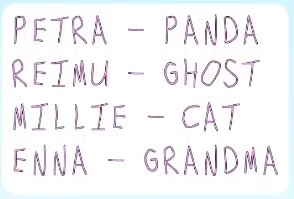 PETRA - PANDA
REIMU - GHOST
MILLIE - CAT
ENNA - GRANDMA